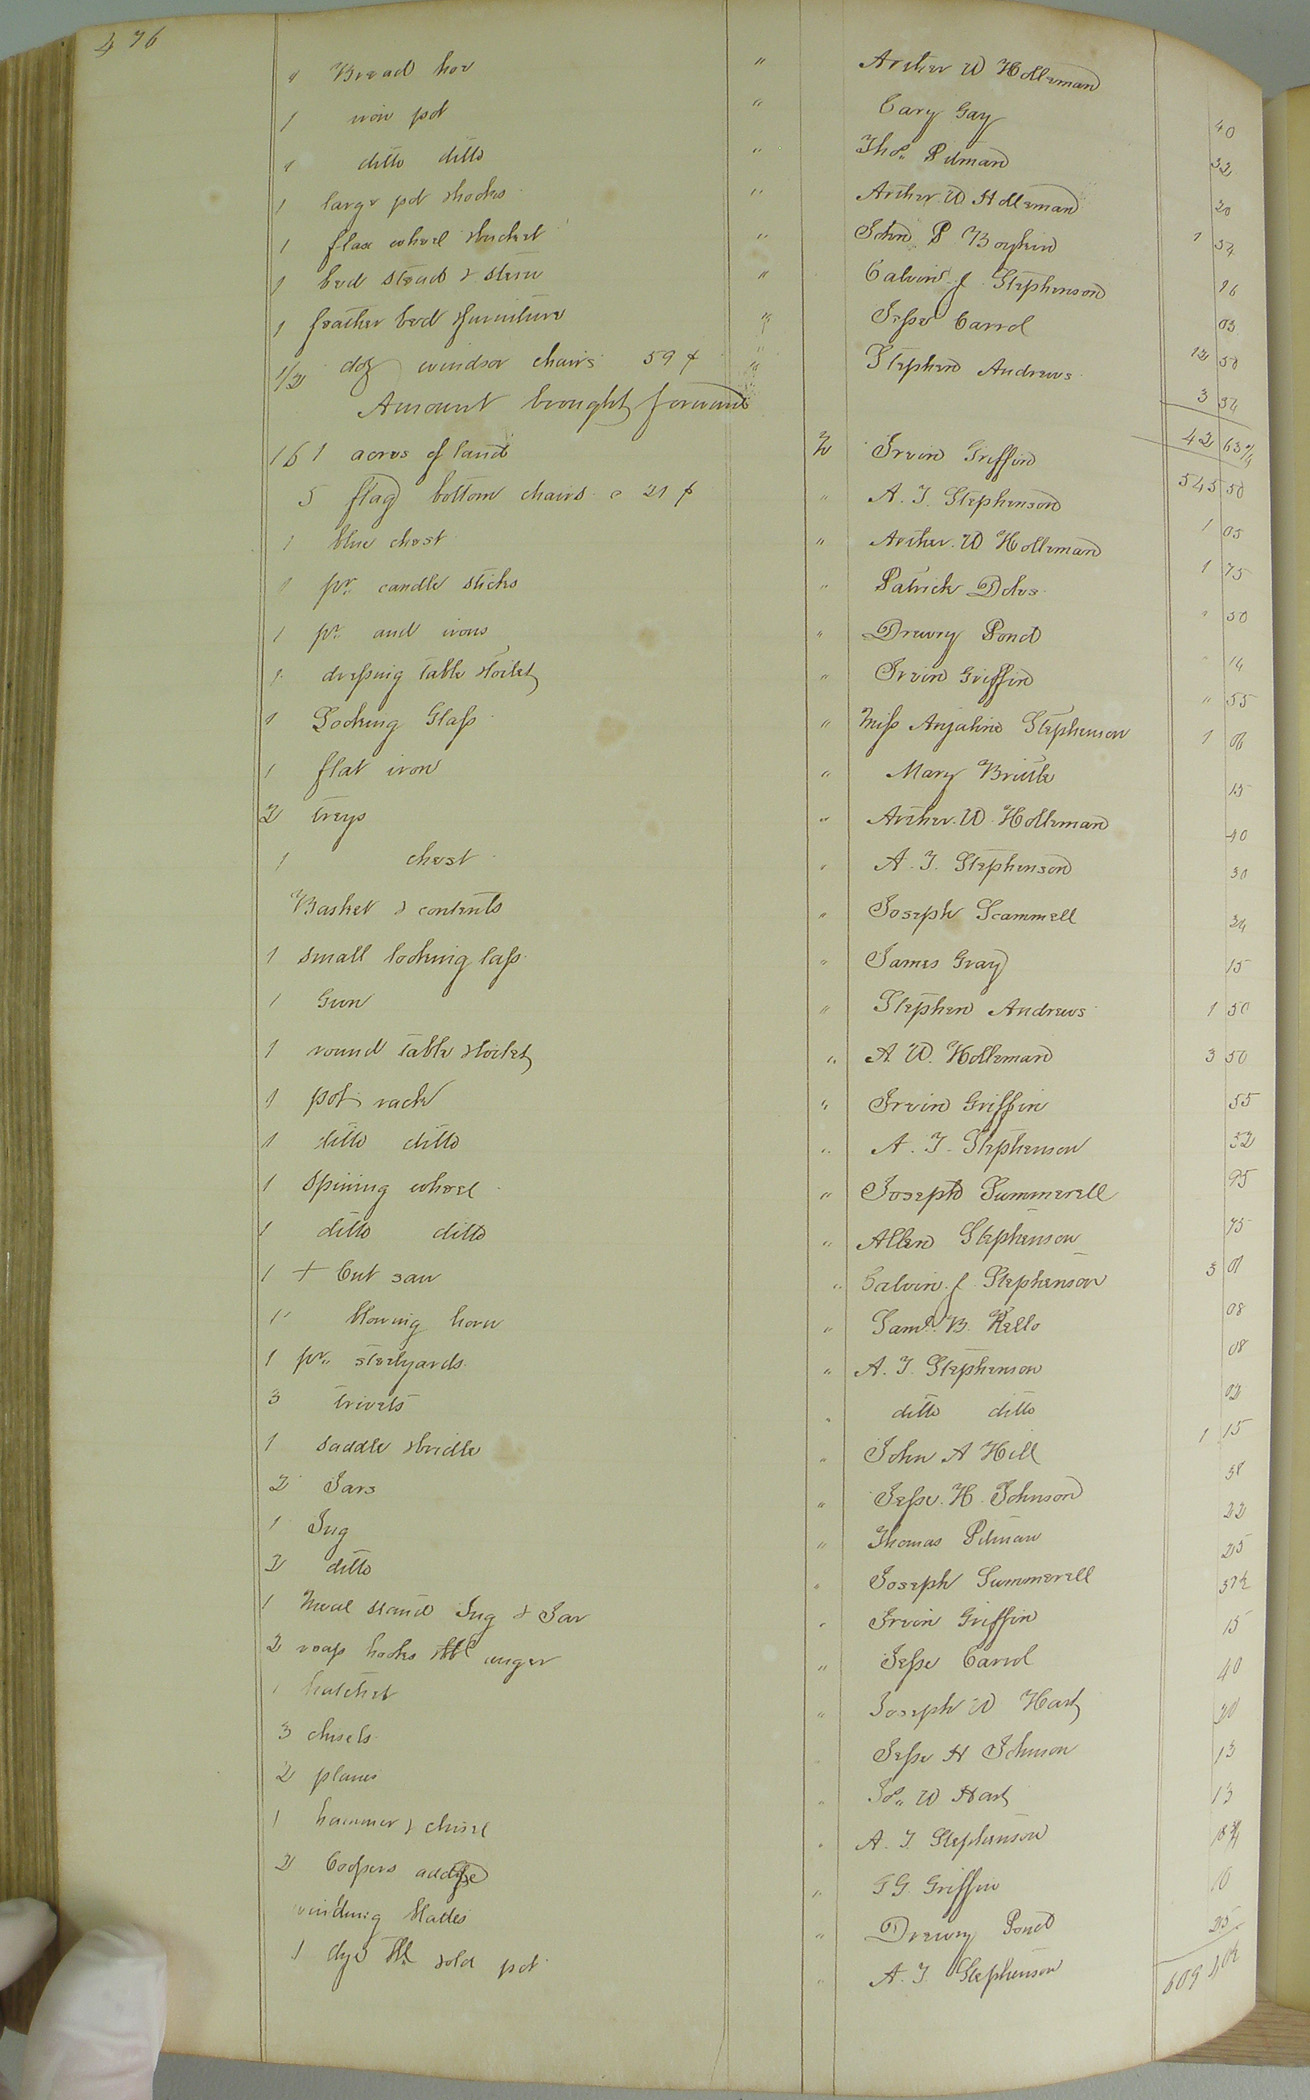 476
1 Bread hoe " Archer W Holleman 40
1 iron pot " Cary Gay 32
1 ditto ditto " Thos. Pitman 20
1 large pot & hooks " Archer W Holleman 1 34
1 flax wheel & bucket " John P Boykin 16
1 bed stead & " Calvin J Stephenson 05
1 feather bed & furniture " Jesse Carrol 12 50
1/2 doz windsor chairs 59 ¢ " Stephen Andrews 3 54
Amount brought forward 42 63 3/4
161 acres of land To Irvin Griffin 545 50
5 flag bottom chairs @ 21 ¢ " A. J. Stephenson 1 05
1 blue chest " Archer. W Holleman 1 75
1 pr. candle sticks " Patrick " 50
1 pr and irons " Drewry Pond 14
1 dressing table & toilet " Irvin Griffin " 55
1 Looking Glass " Miss Anjaline Stephenson 1 06
1 flat iron " Mary Brittle 15
2 treys " Archer. W. Holleman 40
1 chest " A. J. Stephenson 30
Basket & contents " Joseph Scammell 24
1 small looking lass " James Gray 15
1 Gun " Stephen Andrews 1 50
1 round table & toilet " A. W. Holleman 3 50
1 pot rack " Irvin Griffin 55
1 ditto ditto " A. J. Stephenson 52
1 spining wheel " Joseph Summerell 95
1 ditto ditto " Allen Stephenson 75
1 + Cut saw " Calvin J Stephenson 3 01
1 blowing horn " Saml. B. Kello 08
1 pr. steelyards " A. J. Stephenson 08
3 trivets " ditto ditto 02
1 saddle & bridle " John A Hill 1 15
2 Jars " Jesse. H. Johnson 38
1 Jug " Thomas Pitman 22
2 ditto " Joseph Summerell 25
1 Meal stand Jug & Jar " Irvin Griffin 37½
2 reap hooks auger " Jesse Carrol 15
1 hatchet " Joseph W Hart 40
3 chisels Jesse H Johnson 20
2 planes " Jos. W Hart 13
1 hammer & chisel " A. J. Stephenson 13
2 Coopers " G. Griffin 18 3/4
winding blades " Drewry Pond 10
1 sold pot " A. J. Stephenson 25
609